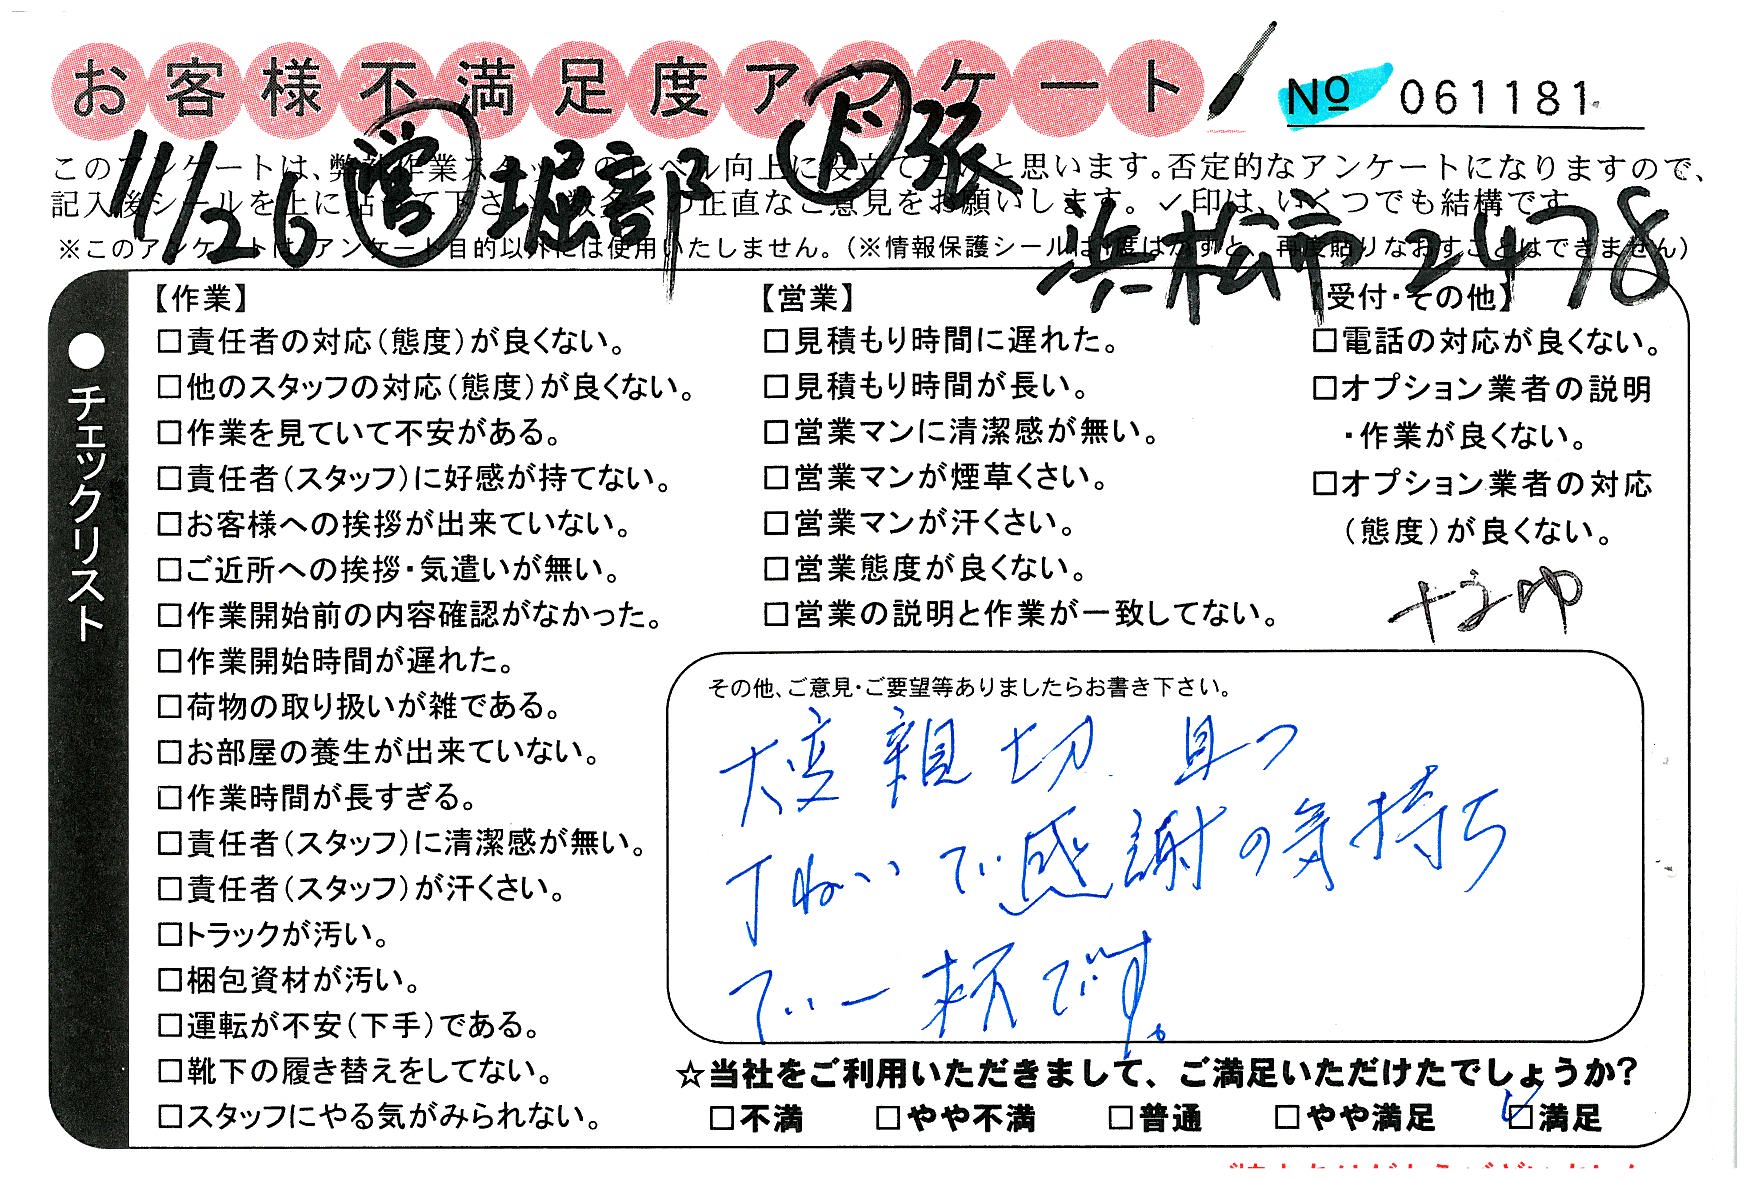 お客様不満足度アンケート
No 061181
11/26 営 堀部 ド 張
浜松市 2478
このアンケートは、弊社作業スタッフのレベル向上に役立てたいと思います。否定的なアンケートになりますので、
記入後シールを上に貼って下さい。数多くの正直なご意見をお願いします。✓印は、いくつでも結構です。
※このアンケートは、アンケート目的以外には使用いたしません。(※情報保護シールは1度はがすと、再度貼りなおすことはできません)
●チェックリスト
【作業】
□責任者の対応(態度)が良くない。
□他のスタッフの対応(態度)が良くない。
□作業を見ていて不安がある。
□責任者(スタッフ)に好感が持てない。
□お客様への挨拶が出来ていない。
□ご近所への挨拶・気遣いが無い。
□作業開始前の内容確認がなかった。
□作業開始時間が遅れた。
□荷物の取り扱いが雑である。
□お部屋の養生が出来ていない。
□作業時間が長すぎる。
□責任者(スタッフ)に清潔感が無い。
□責任者(スタッフ)が汗くさい。
□トラックが汚い。
□梱包資材が汚い。
□運転が不安(下手)である。
□靴下の履き替えをしてない。
□スタッフにやる気がみられない。
【営業】
□見積もり時間に遅れた。
□見積もり時間が長い。
□営業マンに清潔感が無い。
□営業マンが煙草くさい。
□営業マンが汗くさい。
□営業態度が良くない。
□営業の説明と作業が一致してない。
【受付・その他】
□電話の対応が良くない。
□オプション業者の説明
・作業が良くない。
□オプション業者の対応
(態度)が良くない。
その他、ご意見・ご要望等ありましたらお書き下さい。
大変親切 且つ
丁ねいで感謝の気持ち
で一杯です。
☆当社をご利用いただきまして、ご満足いただけたでしょうか?
□不満 □やや不満 □普通 □やや満足 ☑満足